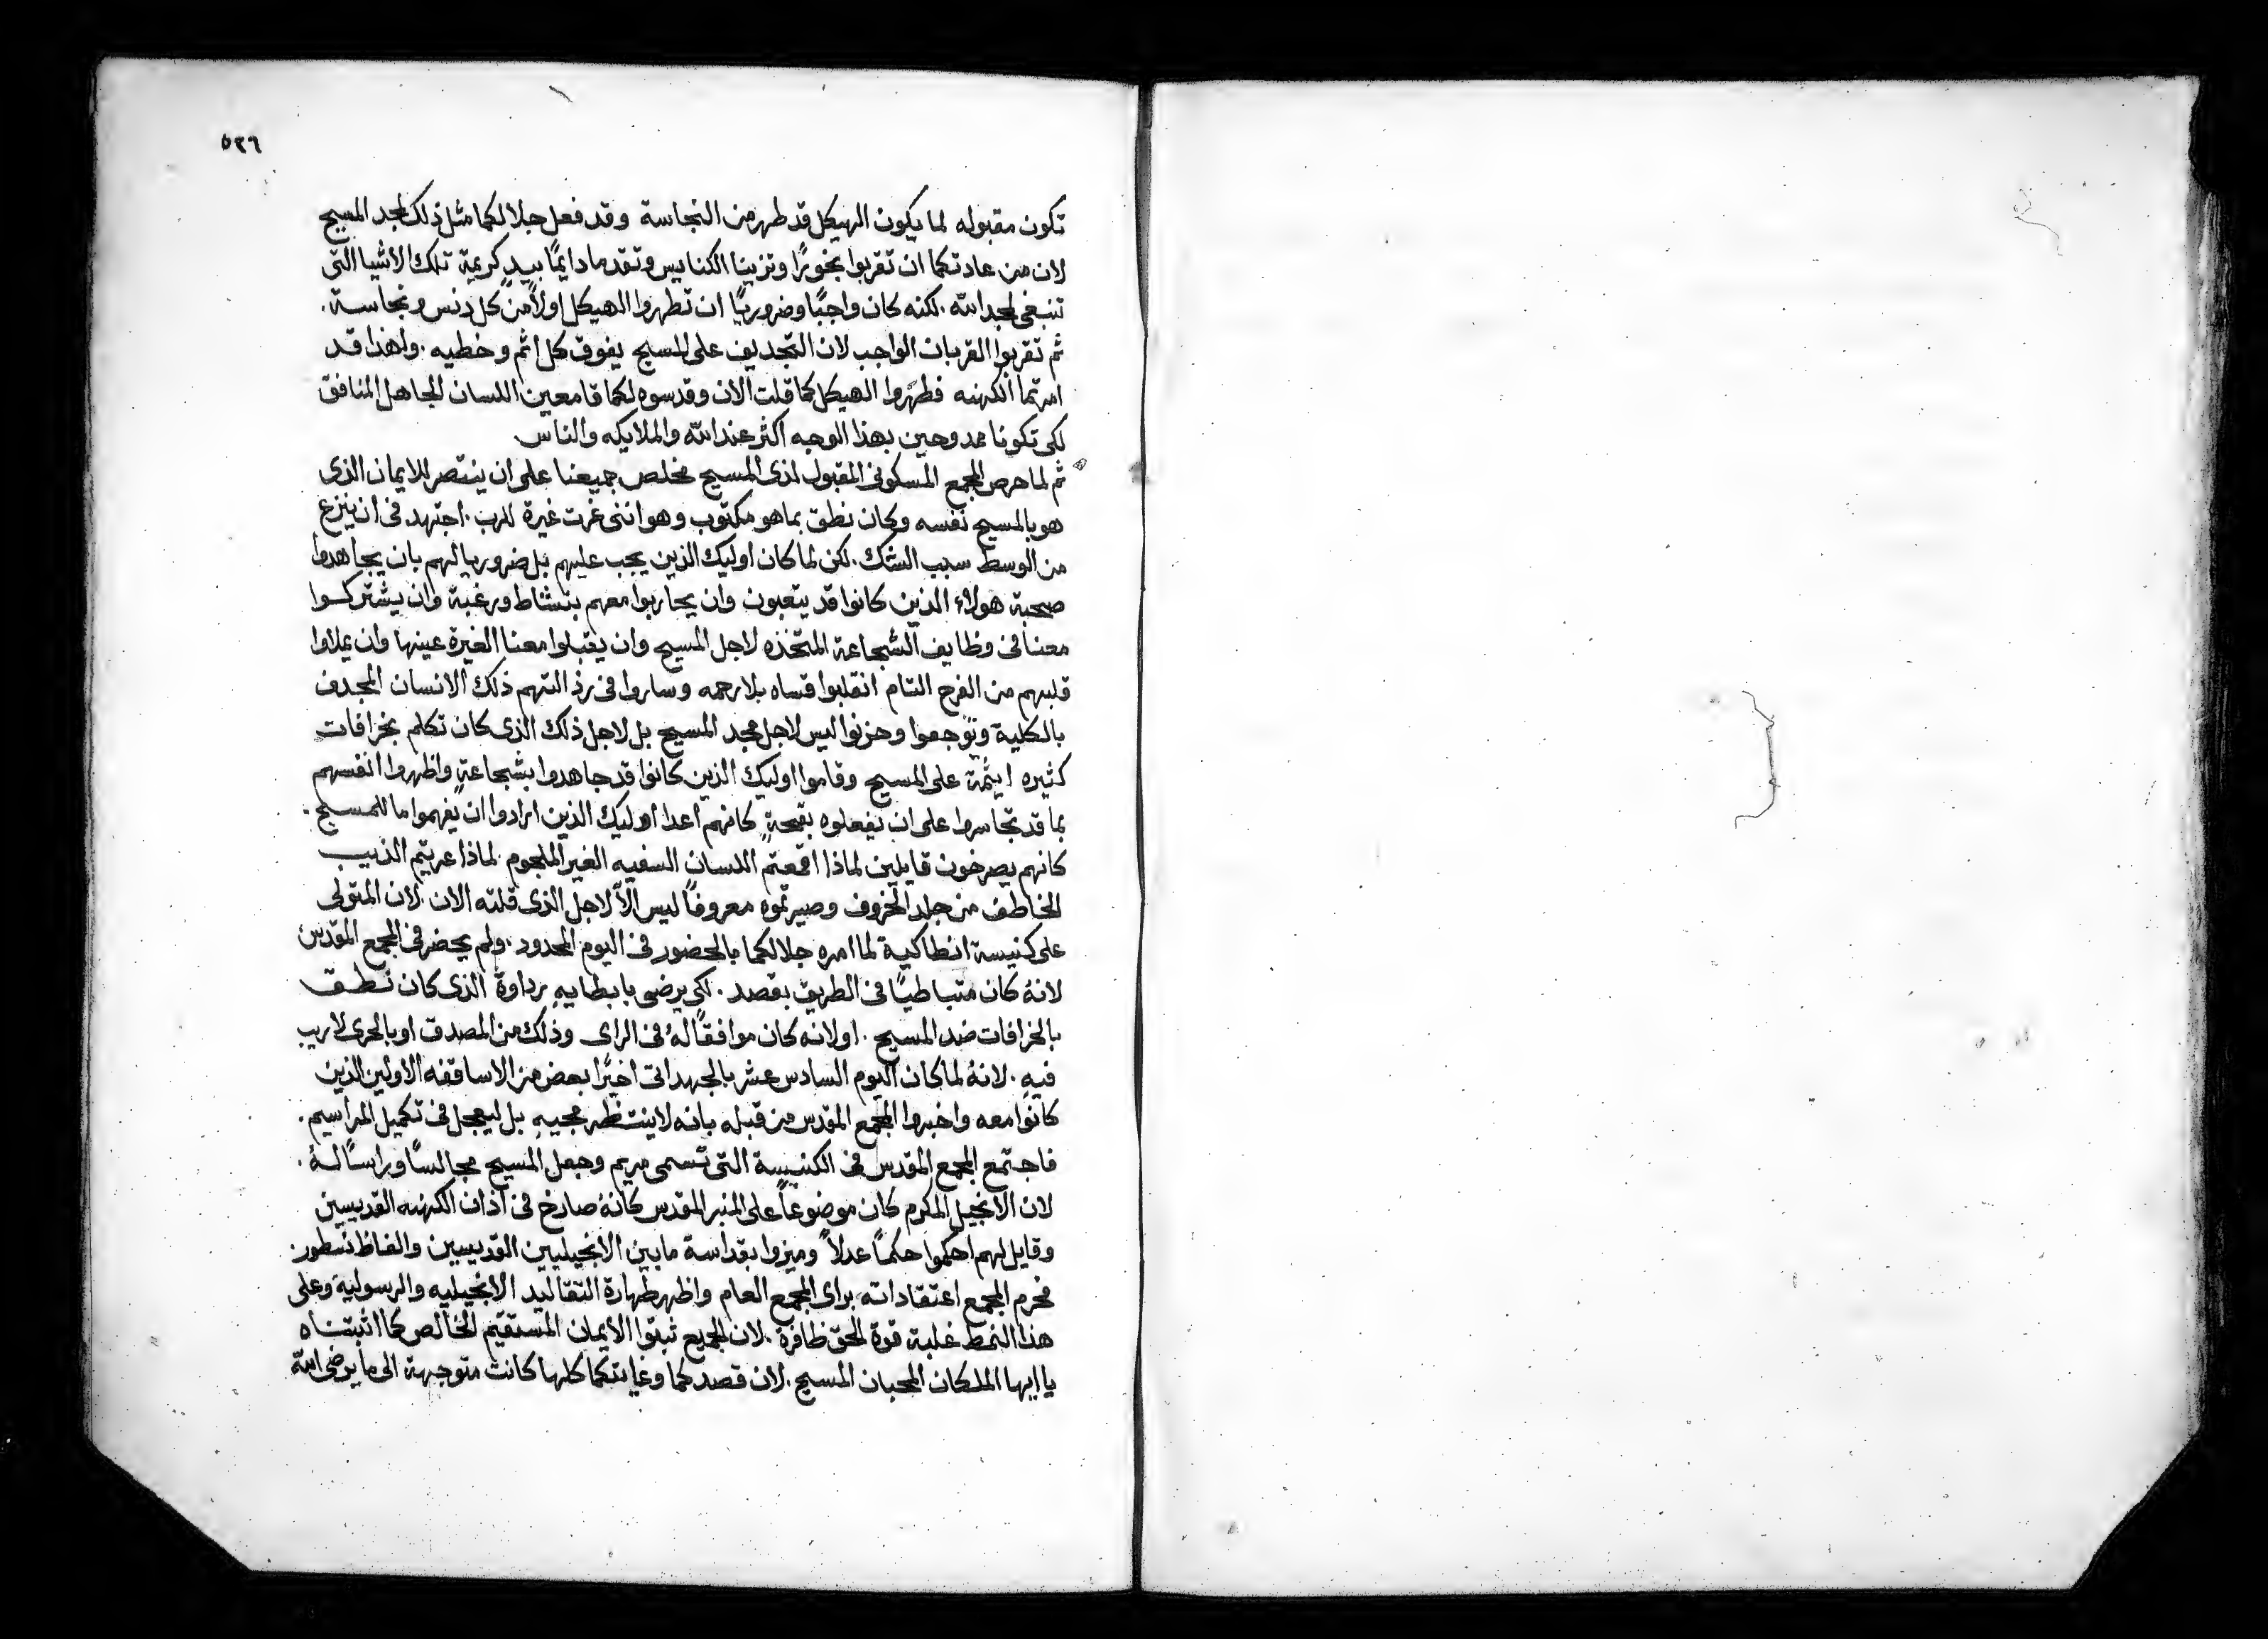 ٥٢٦
تكون مقبوله لما يكون الهيكل قد طهر من النجاسة وقد فعل جلالكما مثل ذلك لمجد المسيح
لان من عادتكما ان تقربوا بخورًا وتزينا الكنايس وتقدما دايمًا بيدٍ كريمة تلك الأشيا التى
تنبغى لمجد الله . لكنه كان واجبًا وضروريًا ان تطهروا الهيكل اولاً من كل دنس ونجاسة .
ثم تقربوا القربان الواجب لان التجديف على المسيح يفوق كل اثم وخطيه . ولهذا قد
امرتما الكهنه فطهّروا الهيكل كما قلت الان وقدسوه لكما قامعين اللسان الجاهل المنافق
لكى تكونا ممدوحين بهذا الوجه اكثر عند الله والملايكه والناس
ثم لما حرص المجمع المسكونى المقبول لذى المسيح مخلص جميعنا على ان ينتصر للايمان الذى
هو بالمسيح نفسه وكان نطق بما هو مكتوب وهو اننى غرت غيرة للرب . اجتهد فى ان ينزع
من الوسط سبب الشك . لكن لما كان اوليك الذين يجب عليهم بل ضروريا لهم بان يجاهدوا
صحبة هولاء الذين كانوا قد يتعبون وان يحاربوا معهم بنشاط ورغبة وان يشتركوا
معنا فى وظايف الشجاعة المتخذه لاجل المسيح وان يقبلوا معنا الغيرة عينها وان يملاوا
قلبهم من الفرح التام انقلبوا قساه بلا رحمه وساروا فى رذالتهم ذلك الانسان المجدف
بالكلية وتوجعوا وحزنوا ليس لاجل مجد المسيح بل لاجل ذلك الذى كان تكلم بخرافات
كثيره اثيمة على المسيح وقاموا اوليك الذين كانوا قد جاهدوا بشجاعةٍ واظهروا انفسهم
بما قد تجاسروا على ان يفعلوه بقبحةٍ كانهم اعدا اوليك الذين ارادوا ان يفهموا ما للمسيح .
كانهم يصرخون قايلين لماذا اقمعتم اللسان السفيه الغير الملجوم . لماذا عريتم الذيب
الخاطف من جلد الخروف وصيرتموه معروفًا ليس الاّ لاجل الذى قلته الان . لان المتولى
على كنيسة انطاكية لما امره جلالكما بالحضور فى اليوم المحدود . ولم يحضر فى المجمع المقدس
لانهُ كان متباطيًا فى الطريق بقصد . لكى يرضى بابطايهِ رداوة الذى كان نطق
بالخرافات ضد المسيح . او لانه كان موافقًا لهُ فى الراى وذلك من المصدق او بالحرى لا ريب
فيهِ . لانهُ لما كان اليوم السادس عشر بالجهد اتى اخيرًا بعض من الاساقفه الاولين الذين
كانوا معه واخبروا المجمع المقدس من قبله بانه لا ينتظر مجيهِ بل ليعجل فى تكميل المراسيم .
فاجتمع المجمع المقدس فى الكنيسة التى تسمى مريم وجعل المسيح مجالسًا وراسًا لهُ .
لان الانجيل المكرم كان موضوعاً على المنبر المقدس كانهُ صارخ فى اذان الكهنه القديسين
وقايل لهم احكموا حكماً عدلاً وميزوا بقداسة ما بين الانجيليين القديسين والفاظ نسطور .
فحرم المجمع اعتقاداته براى المجمع العام واظهر طهارة التقاليد الانجيليه والرسولية وعلى
هذا النمط غلبة قوة الحق ظافرة . لان الجميع ثبتوا الايمان المستقيم الخالص كما اثبتناه
يا ايها الملكان المحبان المسيح . لان قصدكما وغايتكما كلها كانت متوجهة الى ما يرضى الله